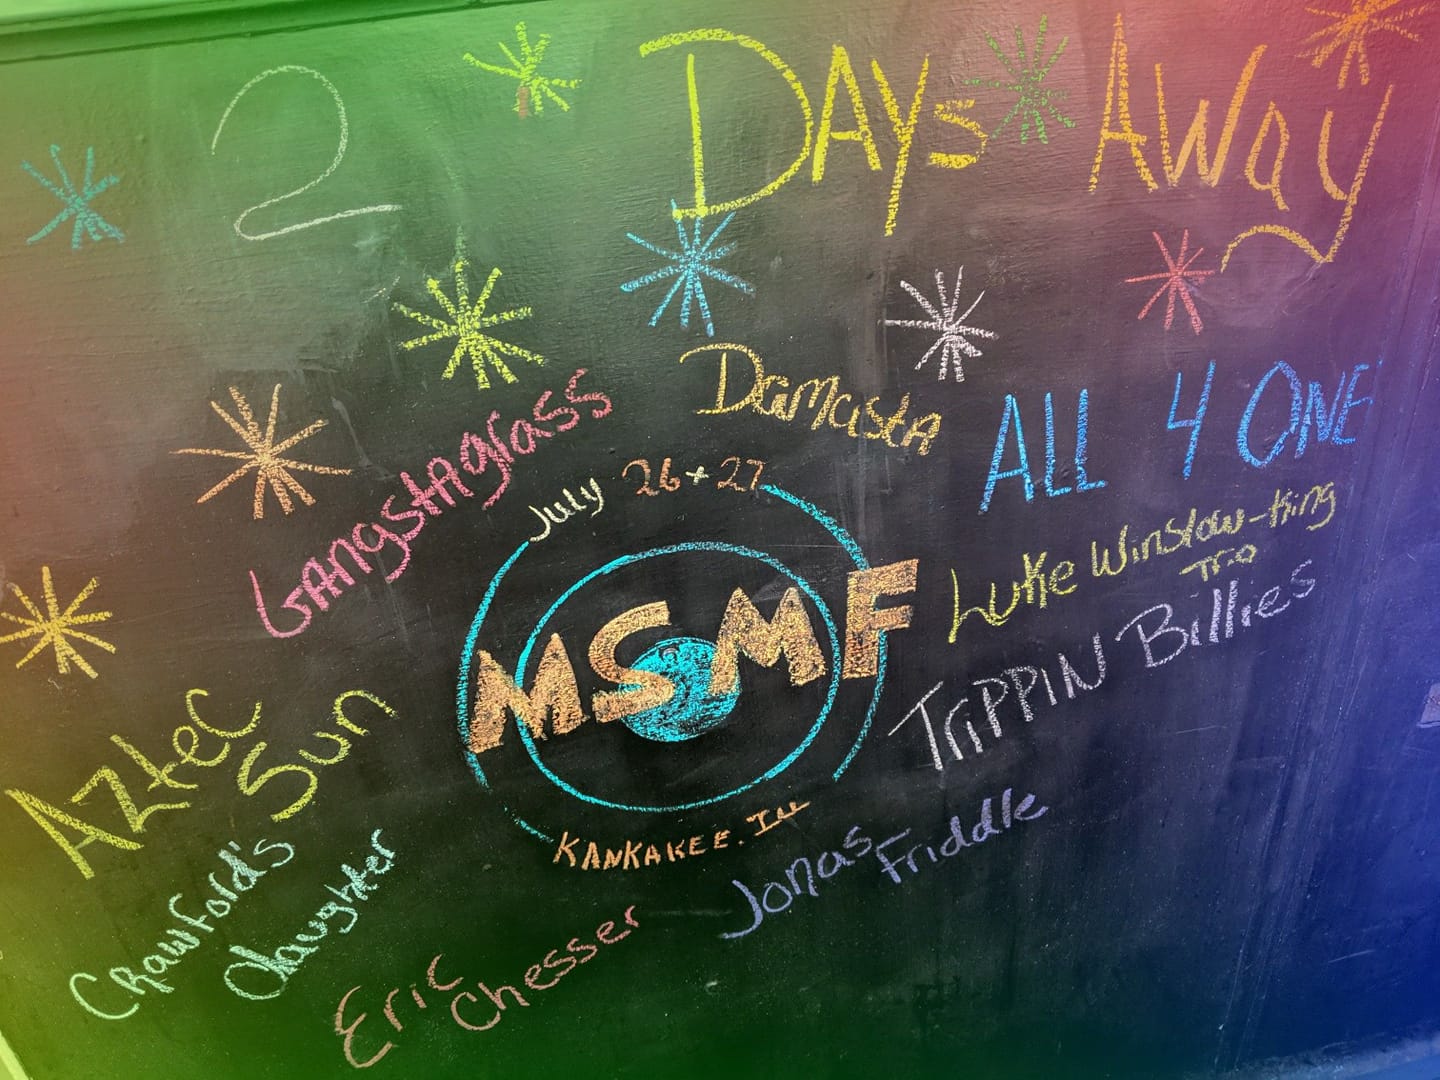 2 DAYs AWay
GANgstAgrass
Damasta
ALL 4 ONE
July 26 + 27
MSMF
KANKAKEE. Ill
Luke Winslow-King
Trio
TriPPIN Billies
Aztec
Sun
Crawford's
daughter
Eric
Chesser
Jonas
Friddle